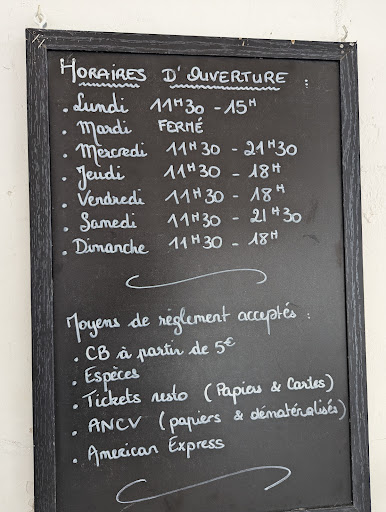 HORAIRES D'OUVERTURE :
. Lundi 11H30 - 15H
. Mardi FERMÉ
. Mercredi 11H30 - 21H30
. Jeudi 11H30 - 18H
. Vendredi 11H30 - 18H
. Samedi 11H30 - 21H30
. Dimanche 11H30 - 18H
Moyens de règlement acceptés :
. CB à partir de 5€
. Espèces
. Tickets resto (Papiers & Cartes)
. ANCV (papiers & dématéralisés)
. American Express